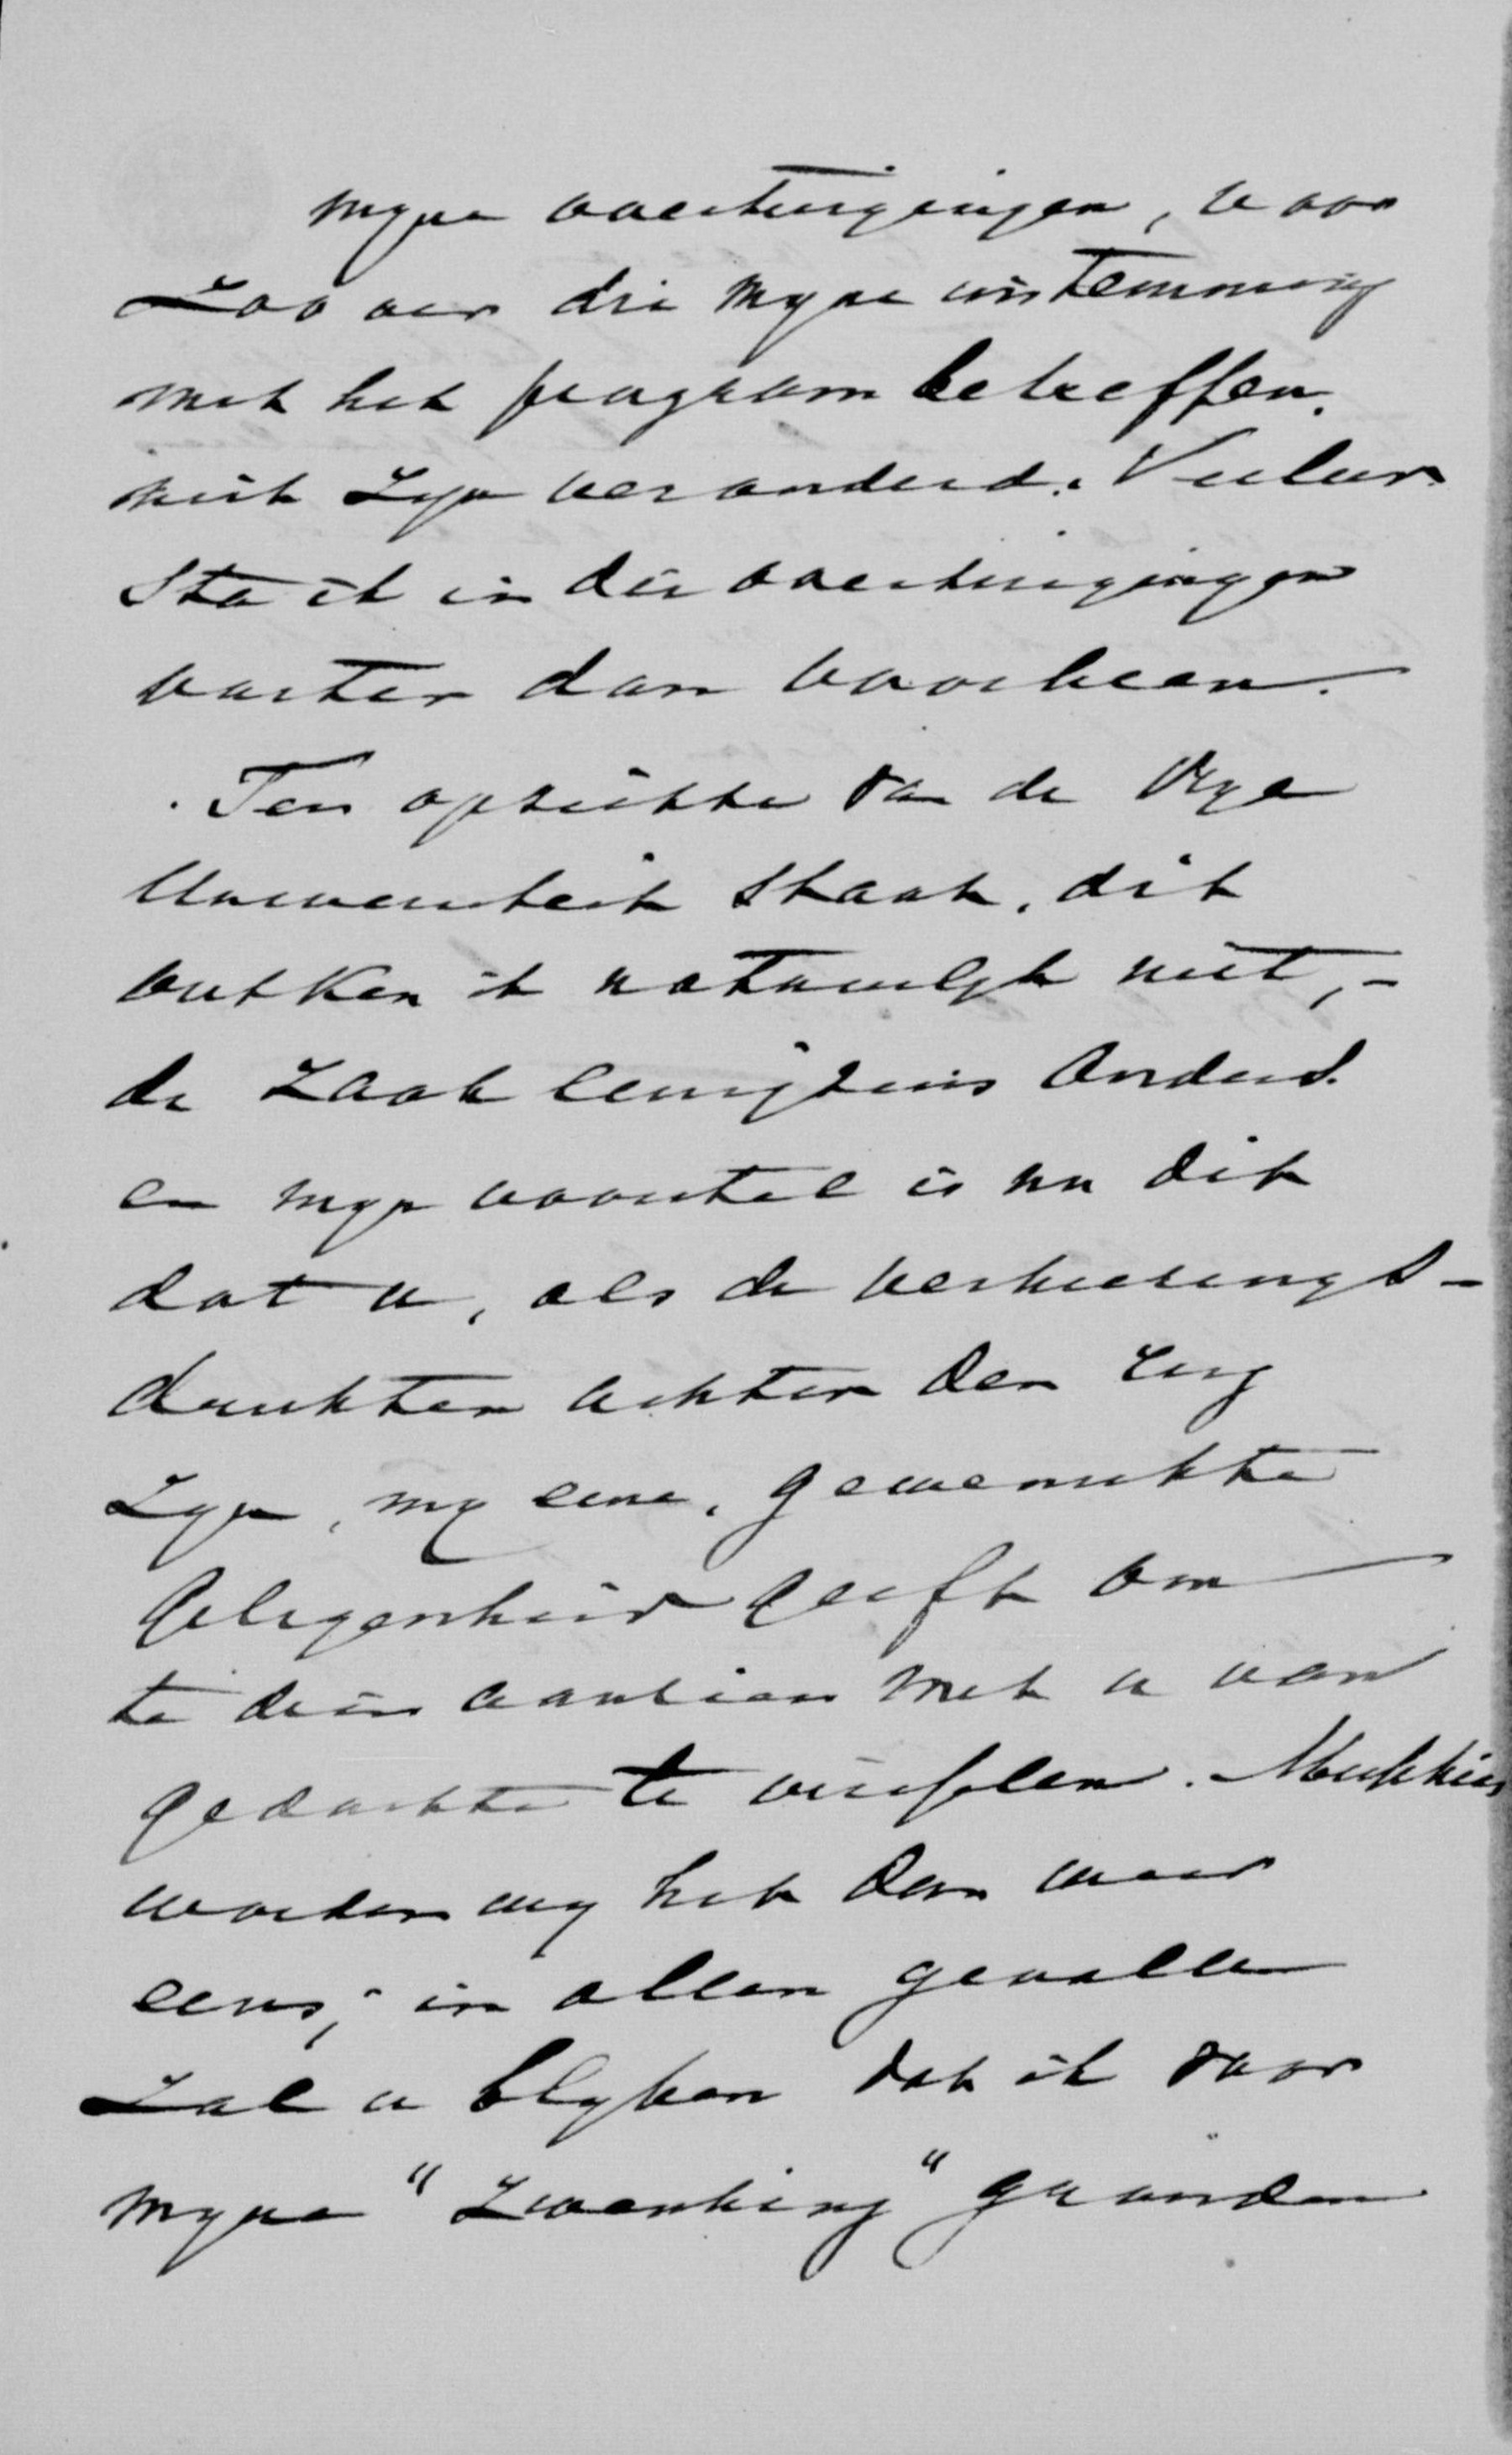 myne overtuigingen, voor
Zoo ver die myne instemming
met het program betreffen,
niet Zyn veranderd. Veeleer
Sta ik in die overtuigingen
vaster dan voorheen.
Ten opzichte van de Vrye
Universiteit staat, dit
ontken ik natuurlyk niet, -
de Zaak eenigszins anders.
en myn voorstel is nu dit
dat u, als de verkiezings-
drukten achter den rug
Zyn, my eene, gewenschte
gelegenheid geeft om
te dien aanzien met u van
gedachte te wisselen. Misschien
worden wy het dan weer
eens; in allen gevalle
Zal u blyken dat ik voor
myne "Zwenking" gronden